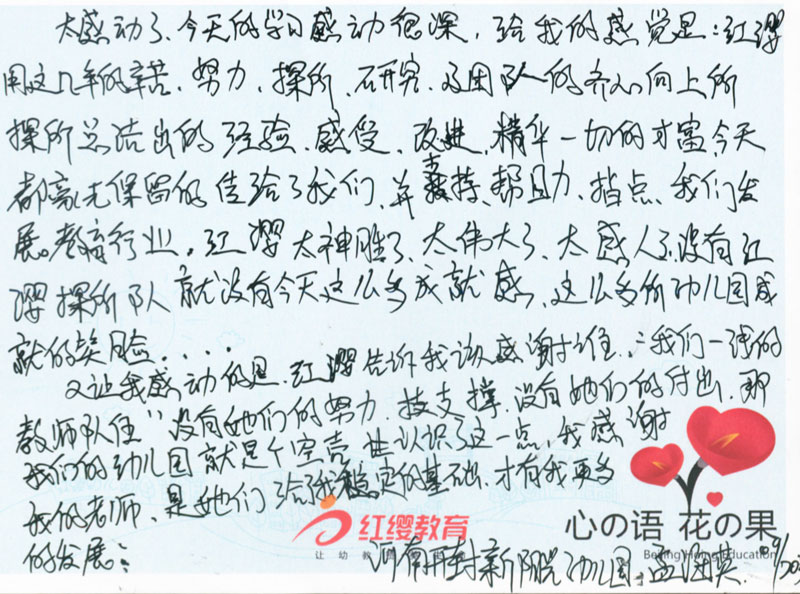 太感动了、今天的学习感动很深，给我的感觉是：红缨
用这几年的辛苦、努力、探所、研究、及团队的齐心向上所
探所总结出的经验、感受、改进、精华一切的才富、今天
都毫无保留的传给了我们、并支持、帮助、指点、我们发
展。教育行业。红缨太神胜了、太伟大了、太感人了。没有红
缨探所队就没有今天这么多成就感、这么多所幼儿园成
就的笑脸....
又让我感动的是、红缨告诉我该感谢谁、“我们一线的
教师队伍”没有她们的努力、支撑、没有她们的付出、那
我们的幼儿园就是个空壳、认识了这一点、我感谢
我的老师、是她们给我稳定的基础、才有我更多
的发展：
红缨教育
让幼教
心の语 花の果
Beijing Hoing Education
河南开封新 幼儿园、孟